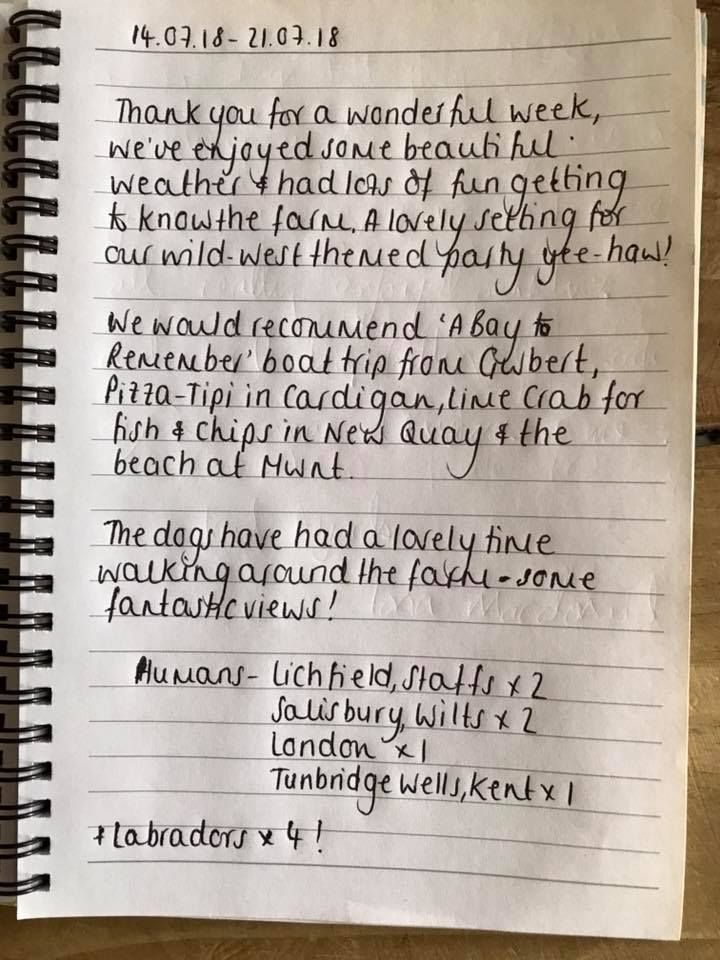 14.07.18 - 21.07.18
Thank you for a wonderful week,
we've enjoyed some beautiful
weather & had lots of fun getting
to know the farm. A lovely setting for
our wild-west themed party yee-haw!
We would recommend 'A Bay to
Remember' boat trip from Gwbert,
Pizza-Tipi in Cardigan, Lime Crab for
fish & chips in New Quay & the
beach at Mwnt.
The dogs have had a lovely time
walking around the farm - some
fantastic views!
Humans - Lichfield, Staffs x 2
Salisbury, Wilts x 2
London x 1
Tunbridge Wells, Kent x 1
+ Labradors x 4!